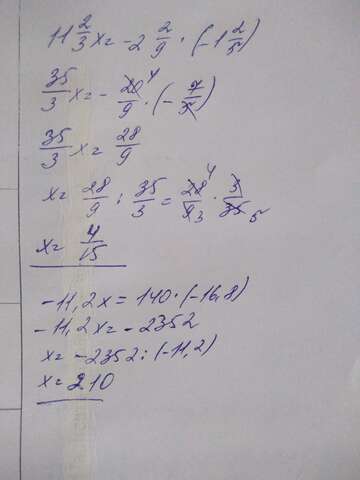 11 2/3 x = -2 2/9 · (-1 2/5)
35/3 x = - 20⁴/9 · (- 7/5)
35/3 x = 28/9
x = 28/9 : 35/3 = 28⁴/9₃ · 3/35₅
x = 4/15
-11,2x = 140·(-16,8)
-11,2x = -2352
x = -2352 : (-11,2)
x = 210